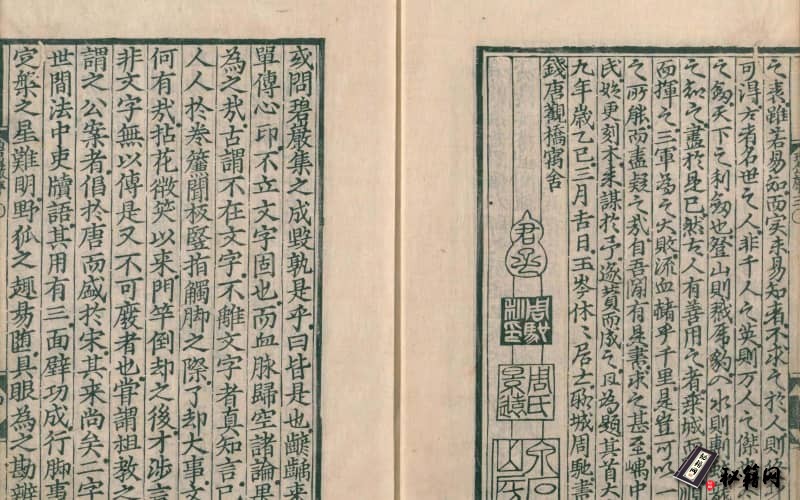 之表雖若易知而實未易知者不求之於人則
可得古者名世之人非千人之英則万人之傑
之劔天下之利劔也登山則戮虎豹入水則剸
之知之盡於是已然古人有善用之者乘城而
而揮之三軍為之大敗流血赭乎千里是豈可以
之所能而盡疑之哉自吾聞有是書求之甚至嵎中
氏始更刻木来謀於予遂賛而成之且為題其首大
九年歲乙巳三月吉日玉岑休〻居士聊城周馳書
錢唐觀橋寓舍
周馳私印
周氏景遠
或問碧巖集之成毀孰是乎曰皆是也來
單傳心印不立文字固也而血脉歸空諸論果
為之哉古謂不在文字不離文字者真知言已
人人於卷簾聞板竪指觸脚之際了却大事文
何有哉拈花微笑以来門竿倒却之後才涉言
非文字無以傳是又不可廢者也嘗謂祖教之
謂之公案者倡於唐而盛於宋其来尚矣二字
世間法中吏牘語其用有三面壁功成行脚事
定槃之星難明野狐之趣易隨具眼為之勘辨
秘籍网